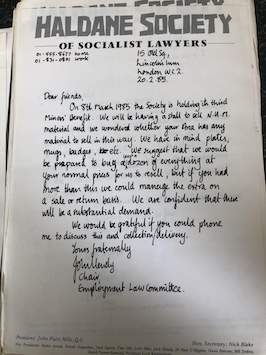 HALDANE SOCIETY
OF SOCIALIST LAWYERS
01-555-8677 home
01-831-0801 work
15 Old Sq,
Lincoln's Inn
London W.C.2.
20.2.85.
Dear friends,
On 8th March 1985 the Society is holding its third
Miners' Benefit. We will be having a stall to sell N.U.M.
material and we wondered whether your Area has any
material to sell in this way. We have in mind, plates,
mugs, badges, etc. We suggest that we would
be prepared to buy a dozen of everything at
your normal price for us to resell, but if you had
more than this we could manage the extra on
a sale or return basis. We are confident that there
will be a substantial demand.
We would be grateful if you could phone
me to discuss this and collection/delivery.
Yours fraternally
John Hendy
Chair,
Employment Law Committee.
President: John Platts Mills, Q.C.
Hon. Secretary: Nick Blake